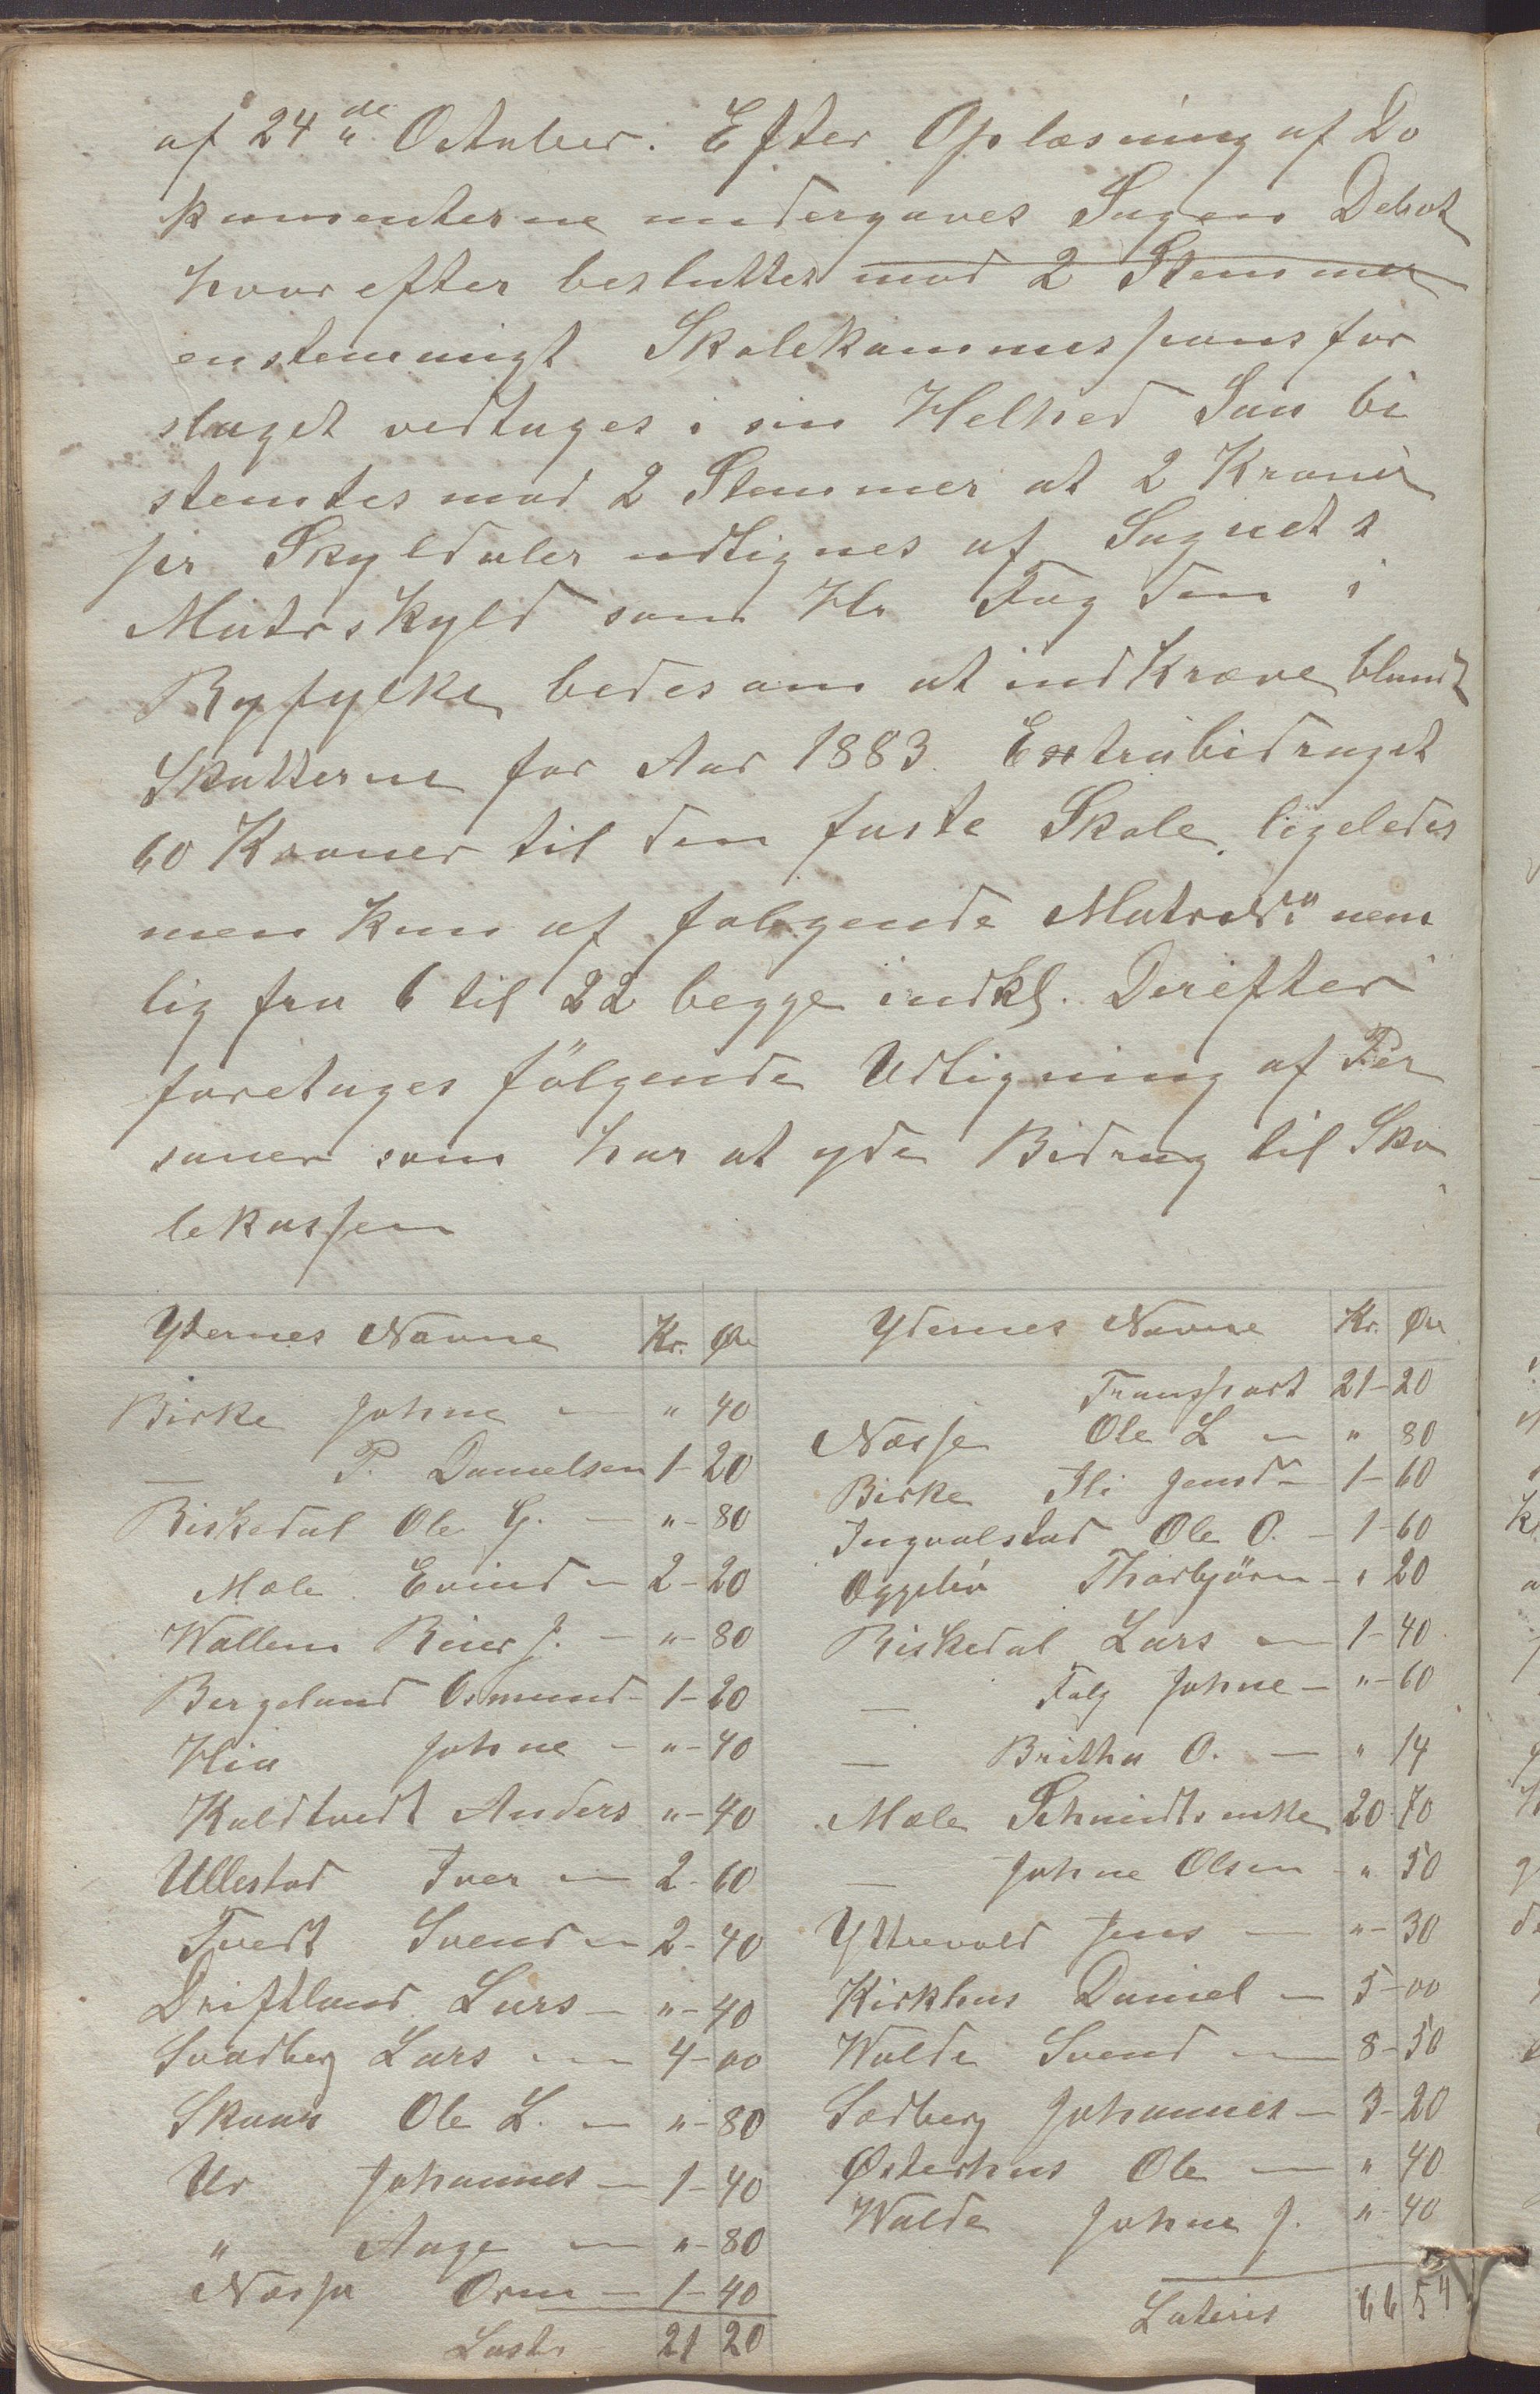 af 24de October. Efter Oplæsning af Do
kumenterne undergaves Sagen Debat
hvorefter besluttes mod 2 Stemmer
enstemmigt Skolekommissions for
slaget vedtages i sin Helhed Saa be
stemtes mod 2 Stemmer at 2 Kroner
per Skyldaler udlignes af Sognets
Matrskyld som Hr Fogden i
Ryfylke bedes om at indkræve blandt
Skatterne for Aar 1883. Extrabidraget
60 Kroner til den faste Skole ligeledes
men kun af følgende nem
lig fra 6 til 22 begge indkl. Derefter
foretages følgende Udligning af Per
soner som har at yde Bidrag til Sko
lekassen
Ydernes Navne Kr. Øre
Birke Johne — " 40
— P. Danielsen 1-20
Riskedal Ole G. — "-80
Mæle Evind — 2-20
Wallem Reier J. — "-80
Bergeland Osmund - 1-20
Hia Johne - "-40
Kaldtvedt Anders "-40
Ullestad Iver — 2-60
Tvedt Svend — 2-40
Driftland Lars - "-40
Svadberg Lars — 4-00
Skaar Ole L. — "-80
Ur Johannes — 1-40
" Aage — "-80
Næsse Orm — 1-40
Lasts 21 20
Ydernes Navne Kr. Øre
Transport 21-20
Næsse Ole L — " 80
Birke Jensd — 1-60
Ingvalstad Ole O. - 1-60
Thorbjørn - " 20
Riskedal Lars — 1-40
— Falg Johne — "-60
— Britha O. — " 14
Mæle Schmidts enke 20-70
— Johne Olsen " 50
Yttrevold Jens — "-30
Kirkhus Daniel — 5-00
Walde Svend — 8-50
Sadberg Johannes — 3-20
Østerhus Ole — " 40
Walde Johne J. "-40
Lateris 66 54